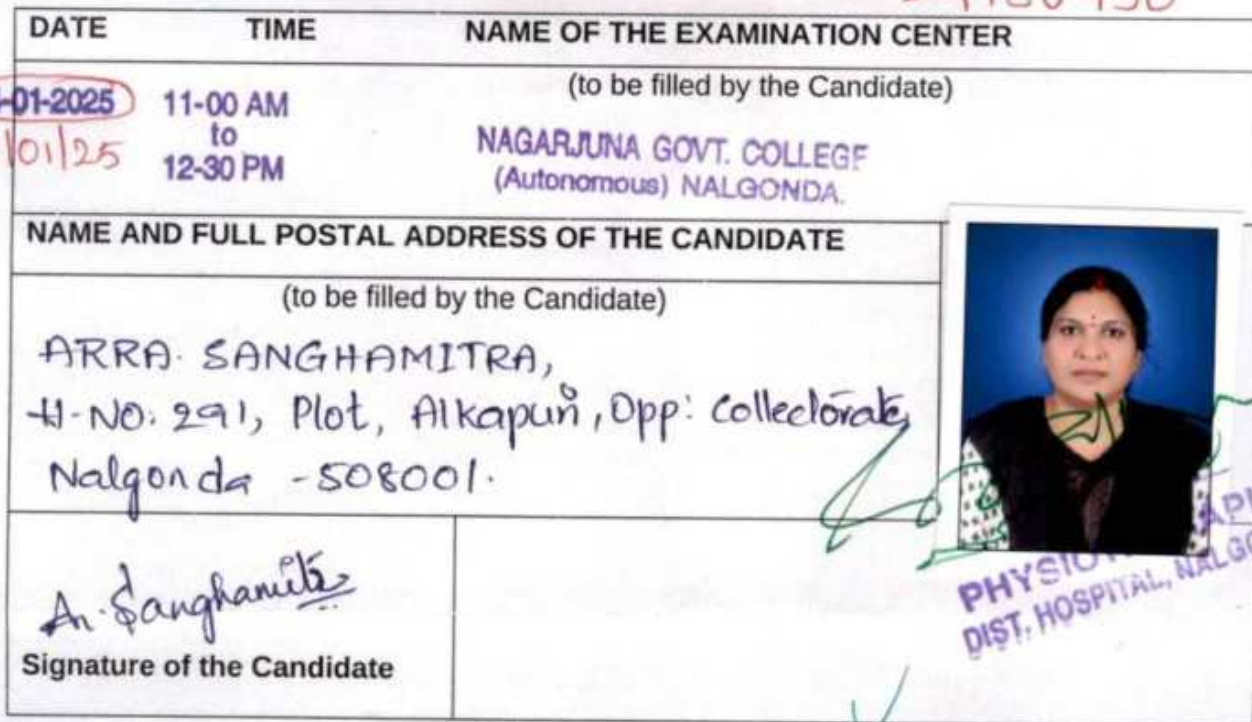 DATE TIME NAME OF THE EXAMINATION CENTER
(to be filled by the Candidate)
-01-2025 11-00 AM
to
/01/25 12-30 PM
NAGARJUNA GOVT. COLLEGE
(Autonomous) NALGONDA.
NAME AND FULL POSTAL ADDRESS OF THE CANDIDATE
(to be filled by the Candidate)
ARRA. SANGHAMITRA,
H-NO: 291, Plot, Alkapuri, Opp: Collectorate,
Nalgonda - 508001.
A. Sanghamitra
Signature of the Candidate
DIST. HOSPITAL,